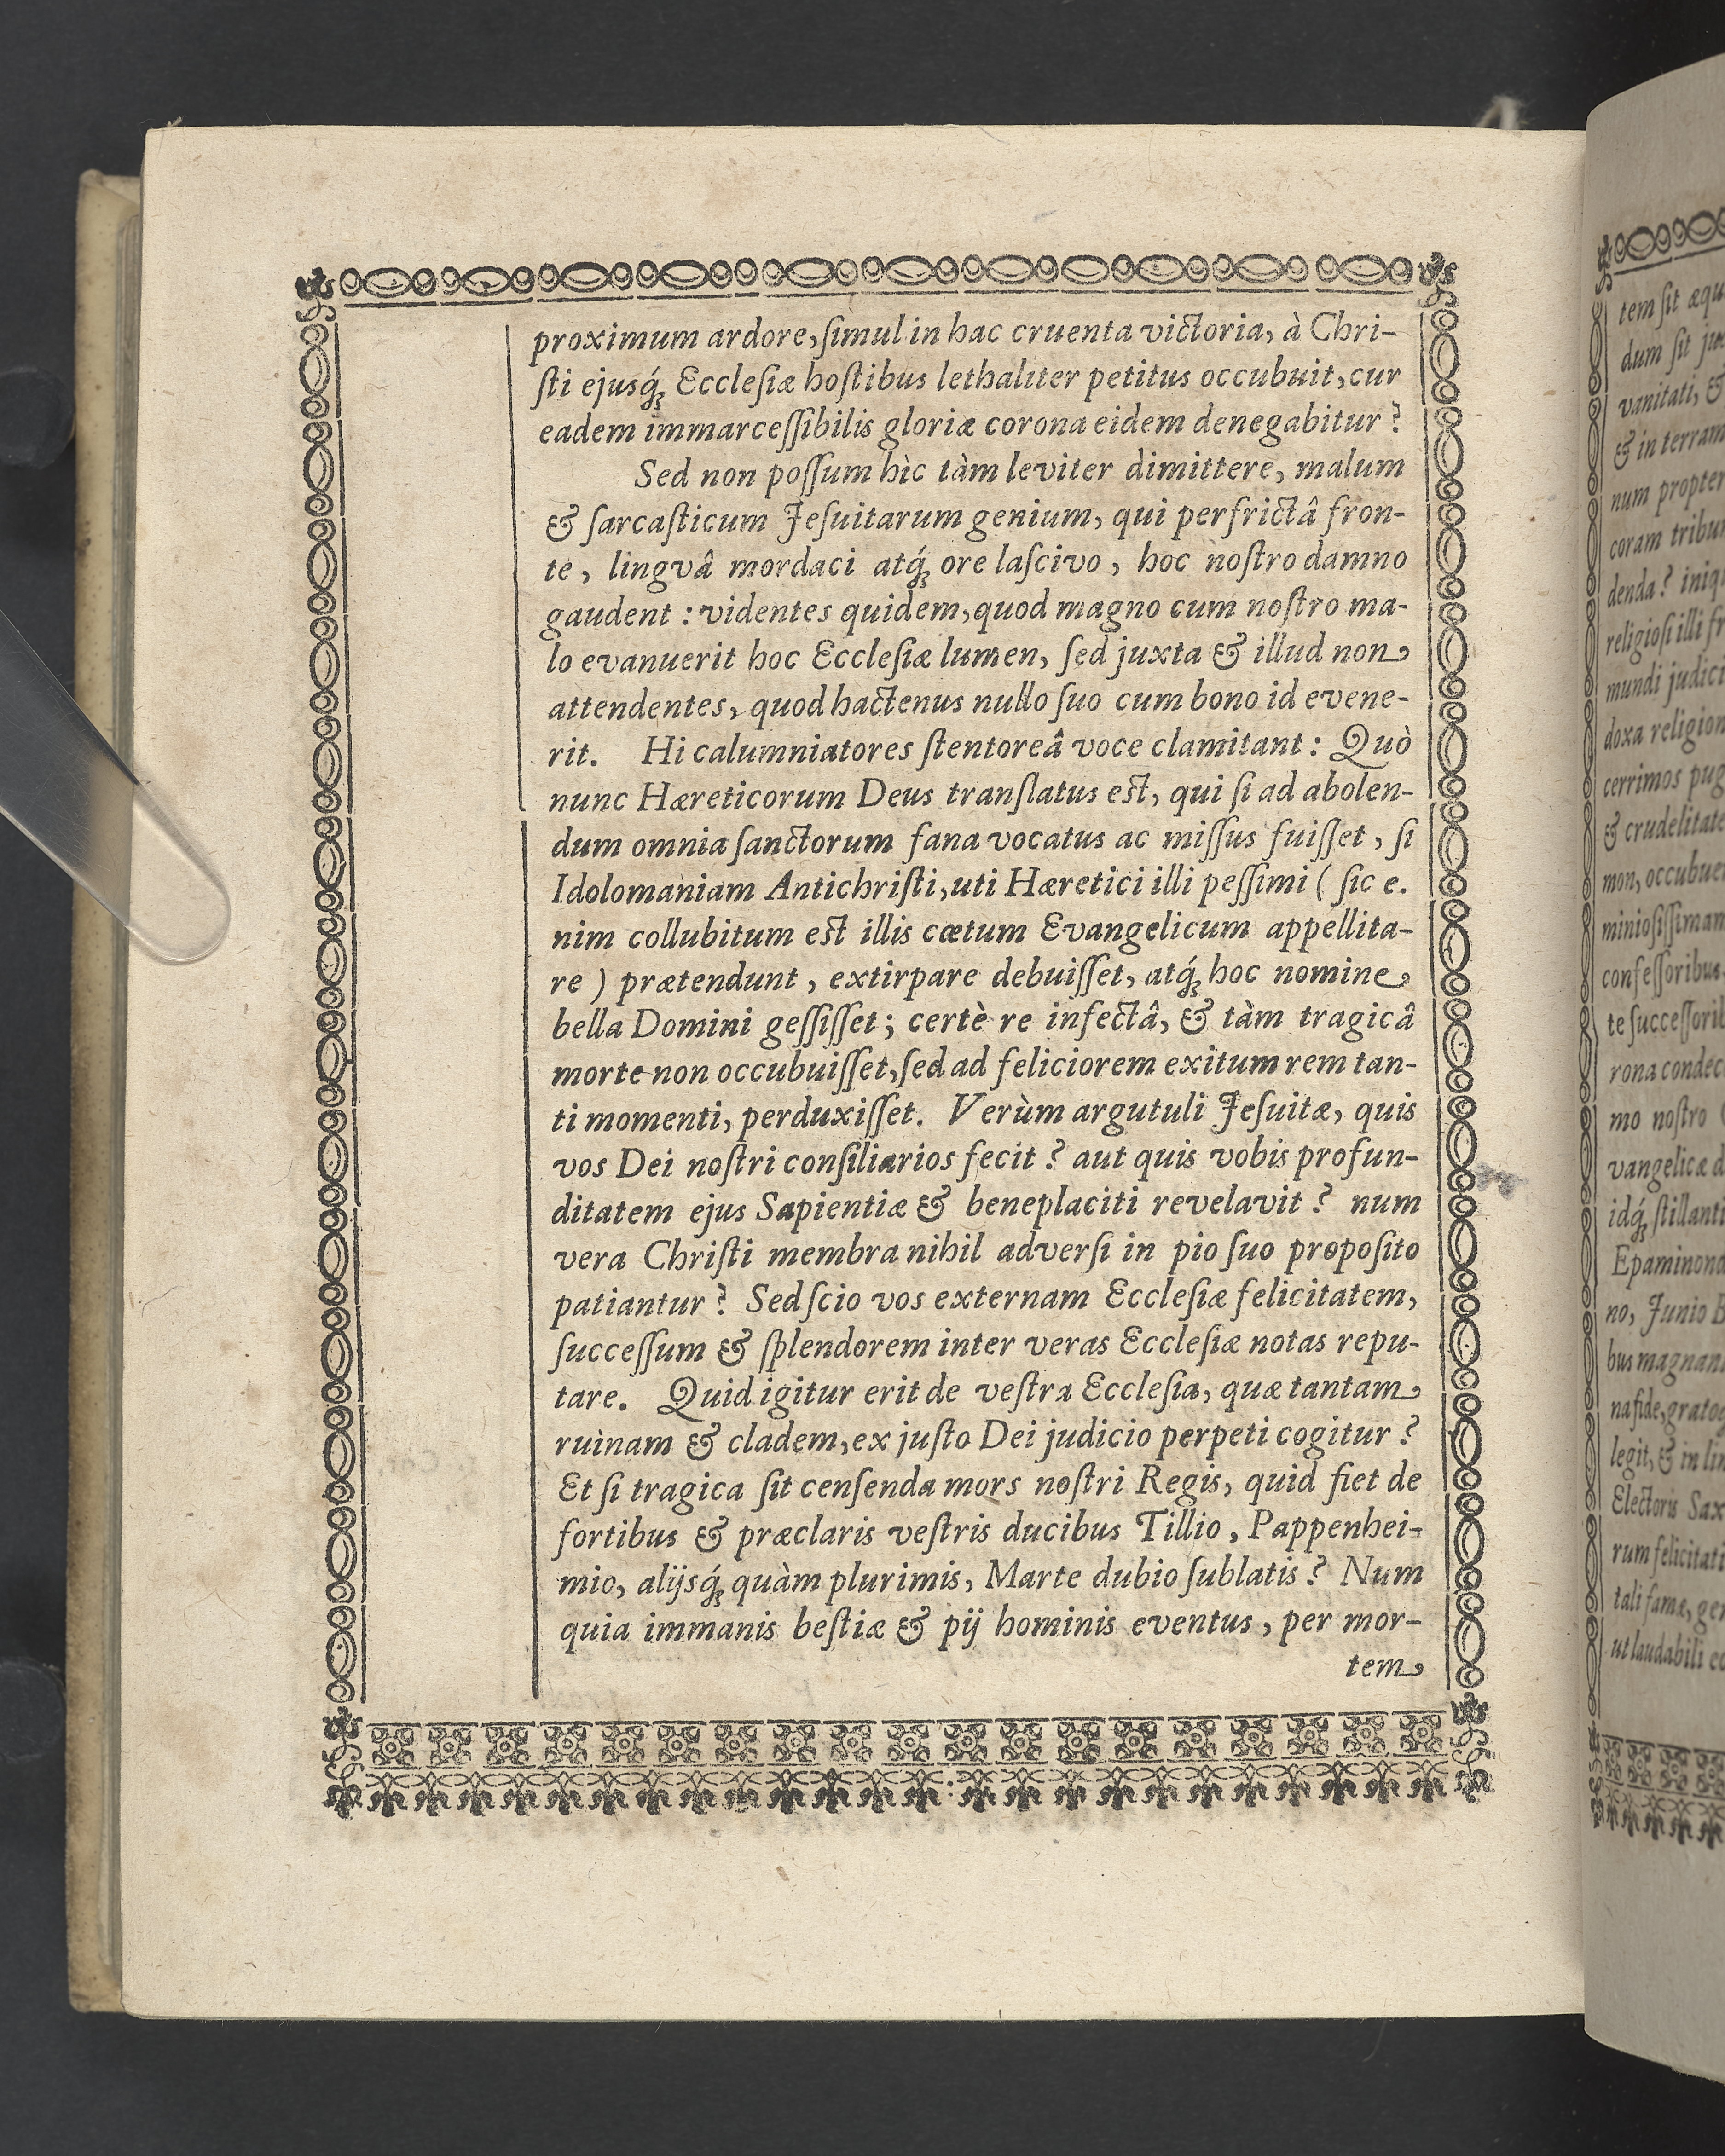 proximum ardore, ſimul in hac cruenta victoria, à Chri-
ſti ejusq́ꝫ Eccleſiæ hoſtibus lethaliter petitus occubuit, cur
eadem immarceſſibilis gloriæ corona eidem denegabitur?
Sed non poſſum hìc tàm leviter dimittere, malum
& ſarcaſticum Jeſuitarum genium, qui perfrictâ fron-
te, lingvâ mordaci atq́ꝫ ore laſcivo, hoc noſtro damno
gaudent: videntes quidem, quod magno cum noſtro ma-
lo evanuerit hoc Eccleſiæ lumen, ſed juxta & illud non
attendentes, quod hactenus nullo ſuo cum bono id evene-
rit. Hi calumniatores ſtentoreâ voce clamitant: Quò
nunc Hæreticorum Deus tranſlatus eſt, qui ſi ad abolen-
dum omnia ſanctorum fana vocatus ac miſſus fuiſſet, ſi
Idolomaniam Antichriſti, uti Hæretici illi peſſimi (ſic e.
nim collubitum eſt illis cœtum Evangelicum appellita-
re) prætendunt, extirpare debuiſſet, atq́ꝫ hoc nomine
bella Domini geſſiſſet; certè re infectâ, & tàm tragicâ
morte non occubuiſſet, ſed ad feliciorem exitum rem tan-
ti momenti, perduxiſſet. Verùm argutuli Jeſuitæ, quis
vos Dei noſtri conſiliarios fecit? aut quis vobis profun-
ditatem ejus Sapientiæ & beneplaciti revelavit? num
vera Chriſti membra nihil adverſi in pio ſuo propoſito
patiantur? Sed ſcio vos externam Eccleſiæ felicitatem,
ſucceſſum & ſplendorem inter veras Eccleſiæ notas repu-
tare. Quid igitur erit de veſtra Eccleſia, quæ tantam
ruinam & cladem, ex juſto Dei judicio perpeti cogitur?
Et ſi tragica ſit cenſenda mors noſtri Regis, quid fiet de
fortibus & præclaris veſtris ducibus Tillio, Pappenhei-
mio, alijsq́ꝫ quàm plurimis, Marte dubio ſublatis? Num
quia immanis beſtiæ & pij hominis eventus, per mor-
tem
tem ſit æqu
dum ſit ju
vanitati, &
& in terram
num propter
coram tribu
denda? iniq
religioſi illi fr
mundi judic
doxa religion
cerrimos pug
& crudelitate
mon, occubue
minioſiſſimam
confeſſoribus
te ſucceſſorib
rona condec
mo noſtro
vangelicæ d
idq́ꝫ ſtillanti
Epaminond
no, Junio B
bus magnan
na fide, grato
legit, & in lin
Electoris Sax
rum felicitati
tali fama, ger
ut laudabili e